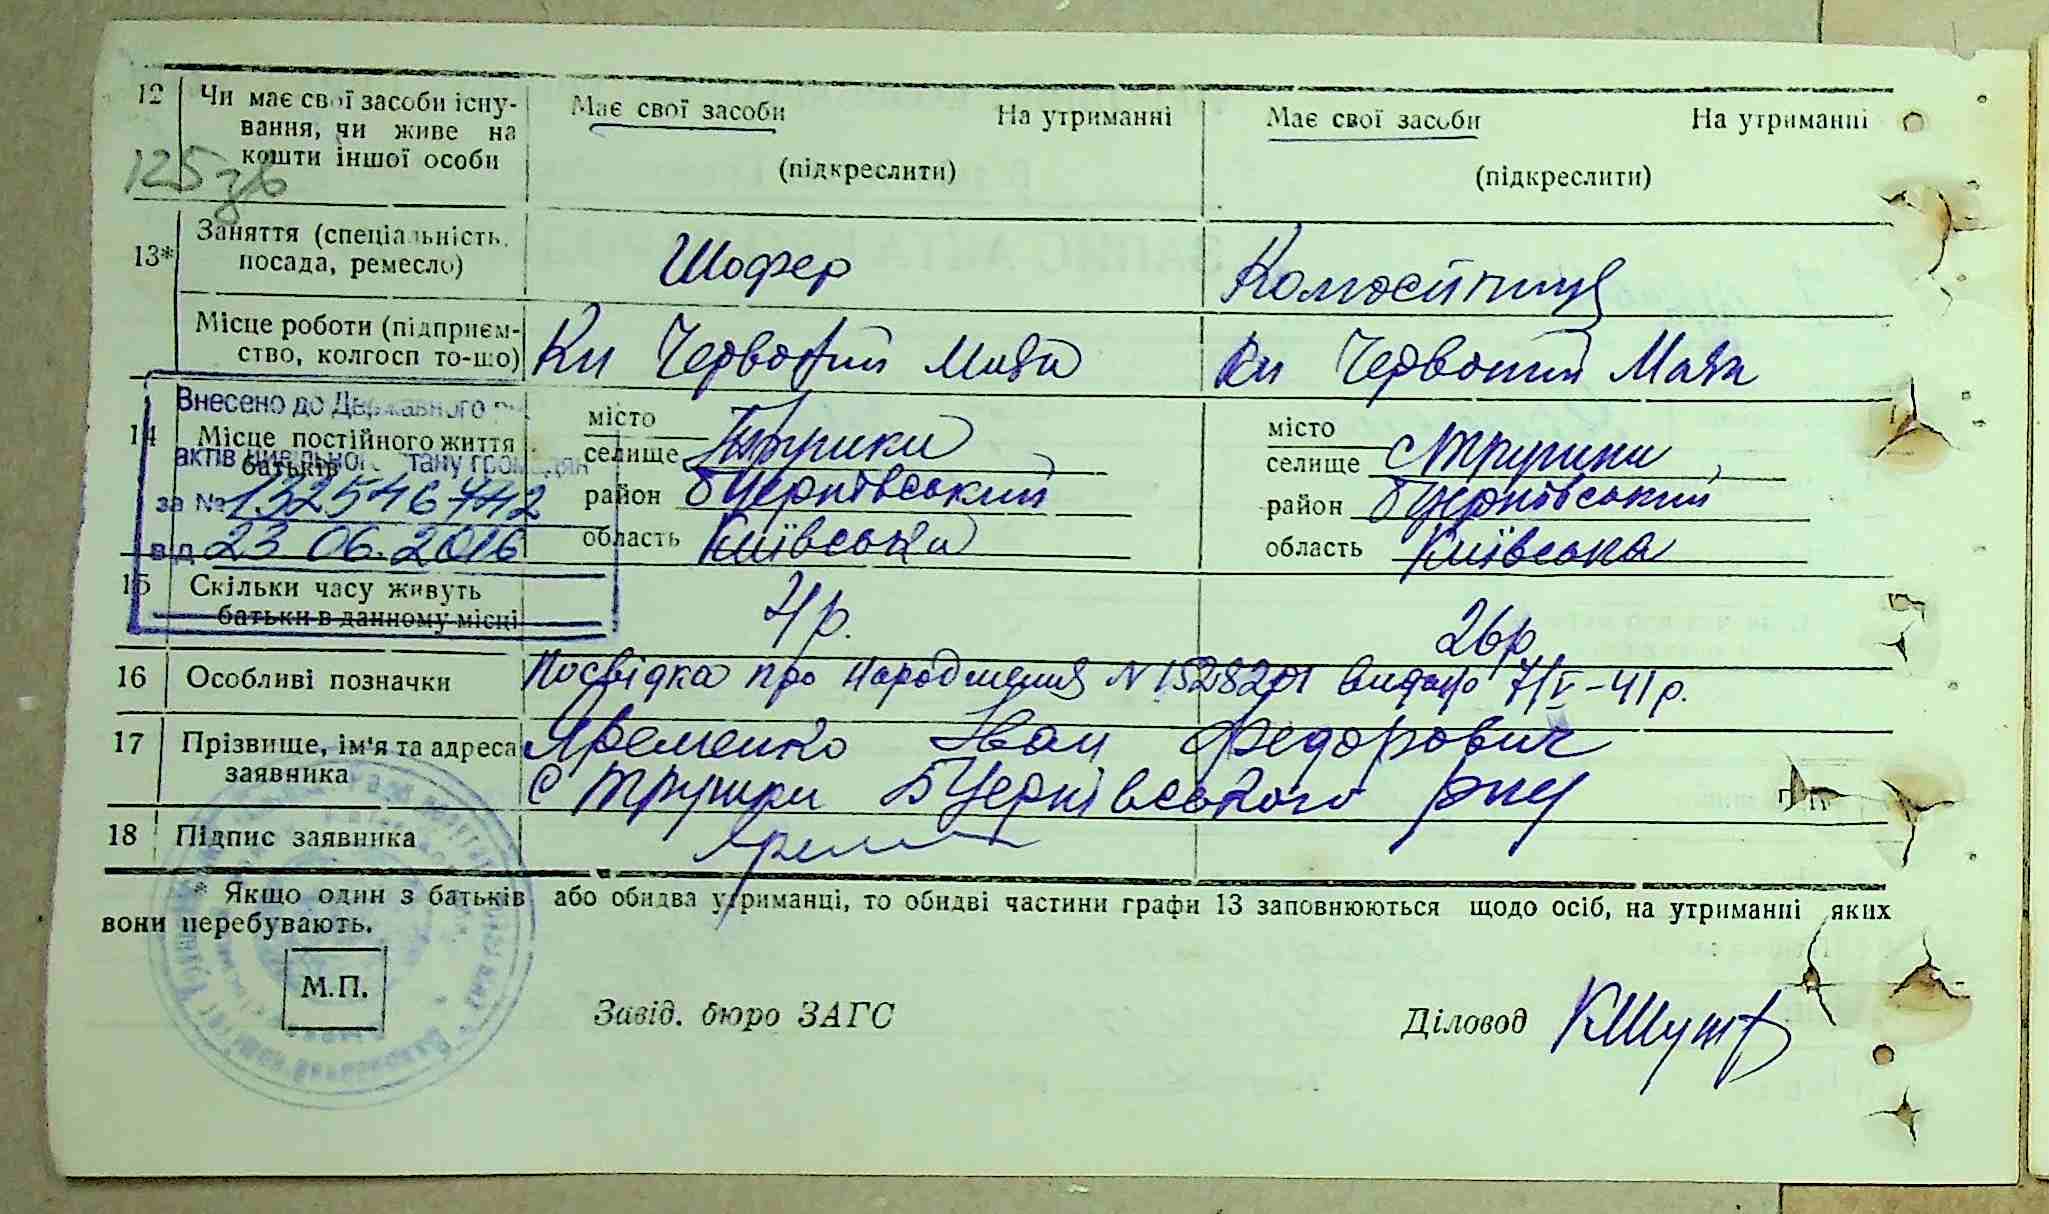 12 Чи має свої засоби існу- Має свої засоби На утриманні Має свої засоби На утриманні
вання, чи живе на
кошти іншої особи (підкреслити) (підкреслити)
125 зв
13* Заняття (спеціальність, Шофер Колгоспниця
посада, ремесло)
Місце роботи (підприєм- Кп Червоний Маяк Кп Червоний Маяк
ство, колгосп то-що)
Внесено до Державного
14 Місце постійного життя місто місто
батьків селище селище
актів цивільного стану громадян
за № 1325467442 район БЦерківський район БЦерківський
від 23 06.2016 область Київська область Київська
15 Скільки часу живуть 4 р. 26 р
батьки в данному місці
16 Особливі позначки Посвідка про народження N 152820 видано 7/V-41 р.
17 Прізвище, ім'я та адреса Яременко Іван Федорович
заявника с БЦерківського рну
18 Підпис заявника
* Якщо один з батьків або обидва утриманці, то обидві частини графи 13 заповнюються щодо осіб, на утриманні яких
вони перебувають.
М.П.
Завід. бюро ЗАГС Діловод